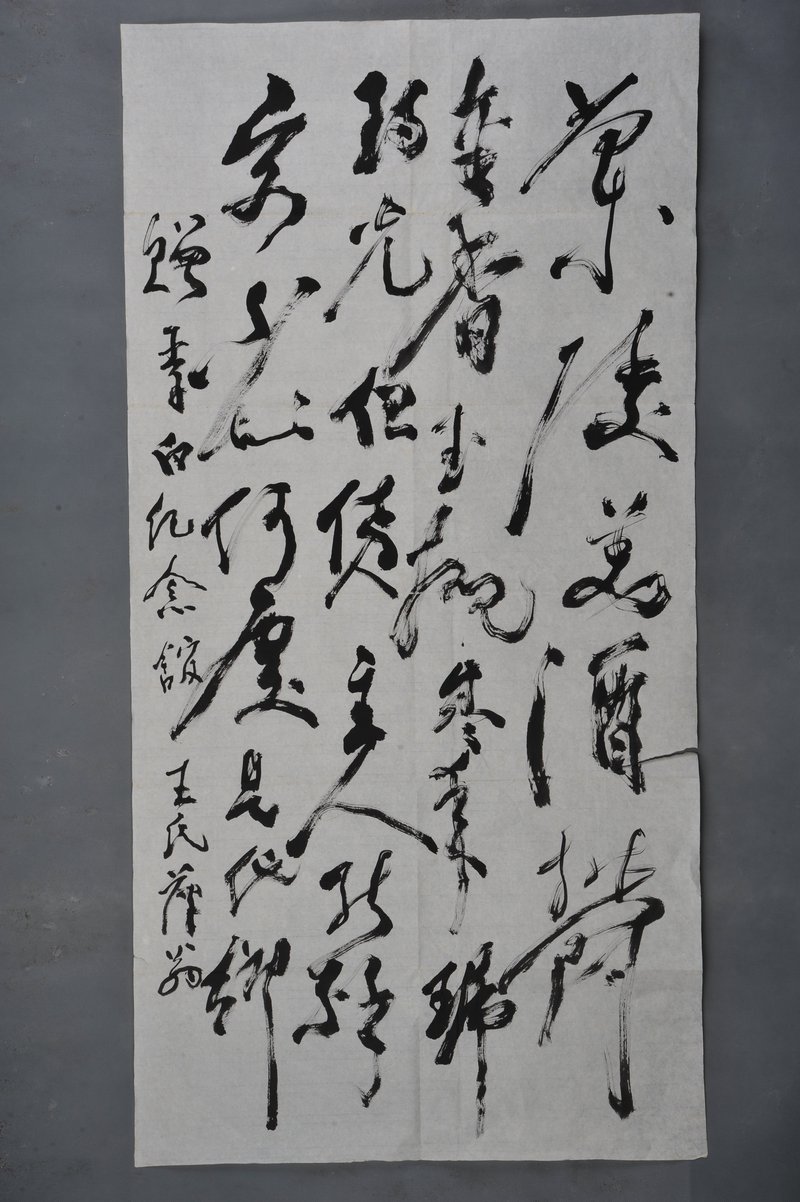 蘭陵美酒鬱
金香玉碗盛來琥
珀光但使主人能醉
客不知何處是他鄉
贈李白紀念館 王氏翁